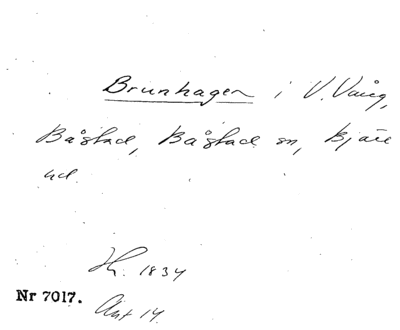 Brunhagen i V. Vång,
Båstad, Båstad sn, Bjäre
hd.
Hr. 1834
Nr 7017.
Ant 14.